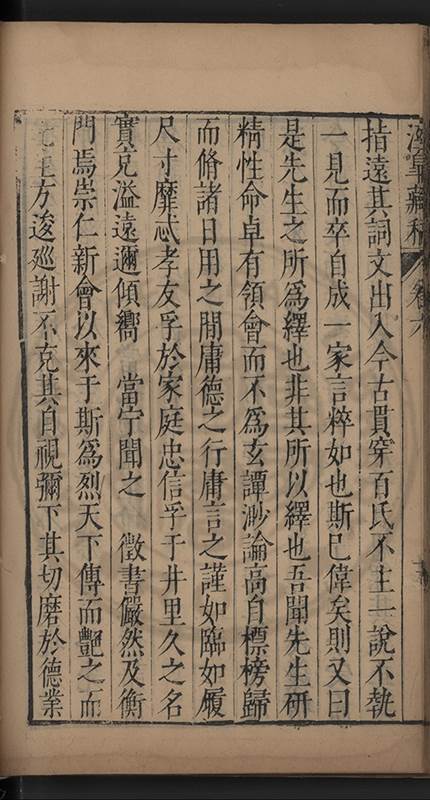 涇皋藏稿 卷六
指遠其詞文出入今古貫穿百氏不主一說不執
一見而卒自成一家言粹如也斯已偉矣則又曰
是先生之所為繹也非其所以繹也吾聞先生研
精性命卓有領會而不為玄譚渺論高自標榜歸
而脩諸日用之閒庸德之行庸言之謹如臨如履
尺寸靡忒孝友孚於家庭忠信孚于井里久之名
實充溢遠邇傾嚮 當宁聞之 徵書儼然及衡
門焉崇仁新會以來于斯為烈天下傳而艷之而
先生方逡廵謝不克其自視彌下其切磨於德業